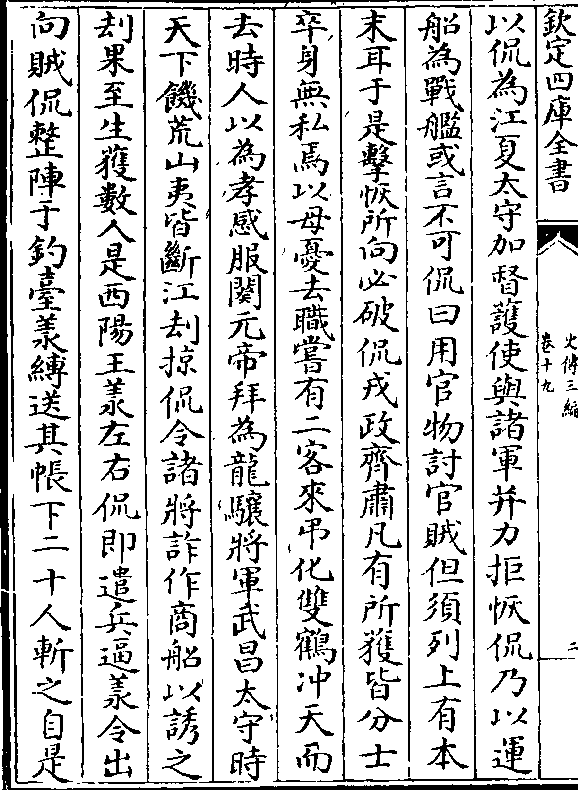 欽定四庫全書
史傳三編
卷十九
三
以侃為江夏太守加督護使與諸軍并力拒恢侃乃以運
船為戰艦或言不可侃曰用官物討官賊但須列上有本
末耳于是擊恢所向必破侃戎政齊肅凡有所獲皆分士
卒身無私焉以母憂去職嘗有二客來弔化雙鶴冲天而
去時人以為孝感服闋元帝拜為龍驤將軍武昌太守時
天下饑荒山夷皆斷江刦掠侃令諸將詐作商船以誘之
刦果至生獲數人是西陽王羕左右侃即遣兵逼羕令出
向賊侃整陣于釣臺羕縛送其帳下二十人斬之自是